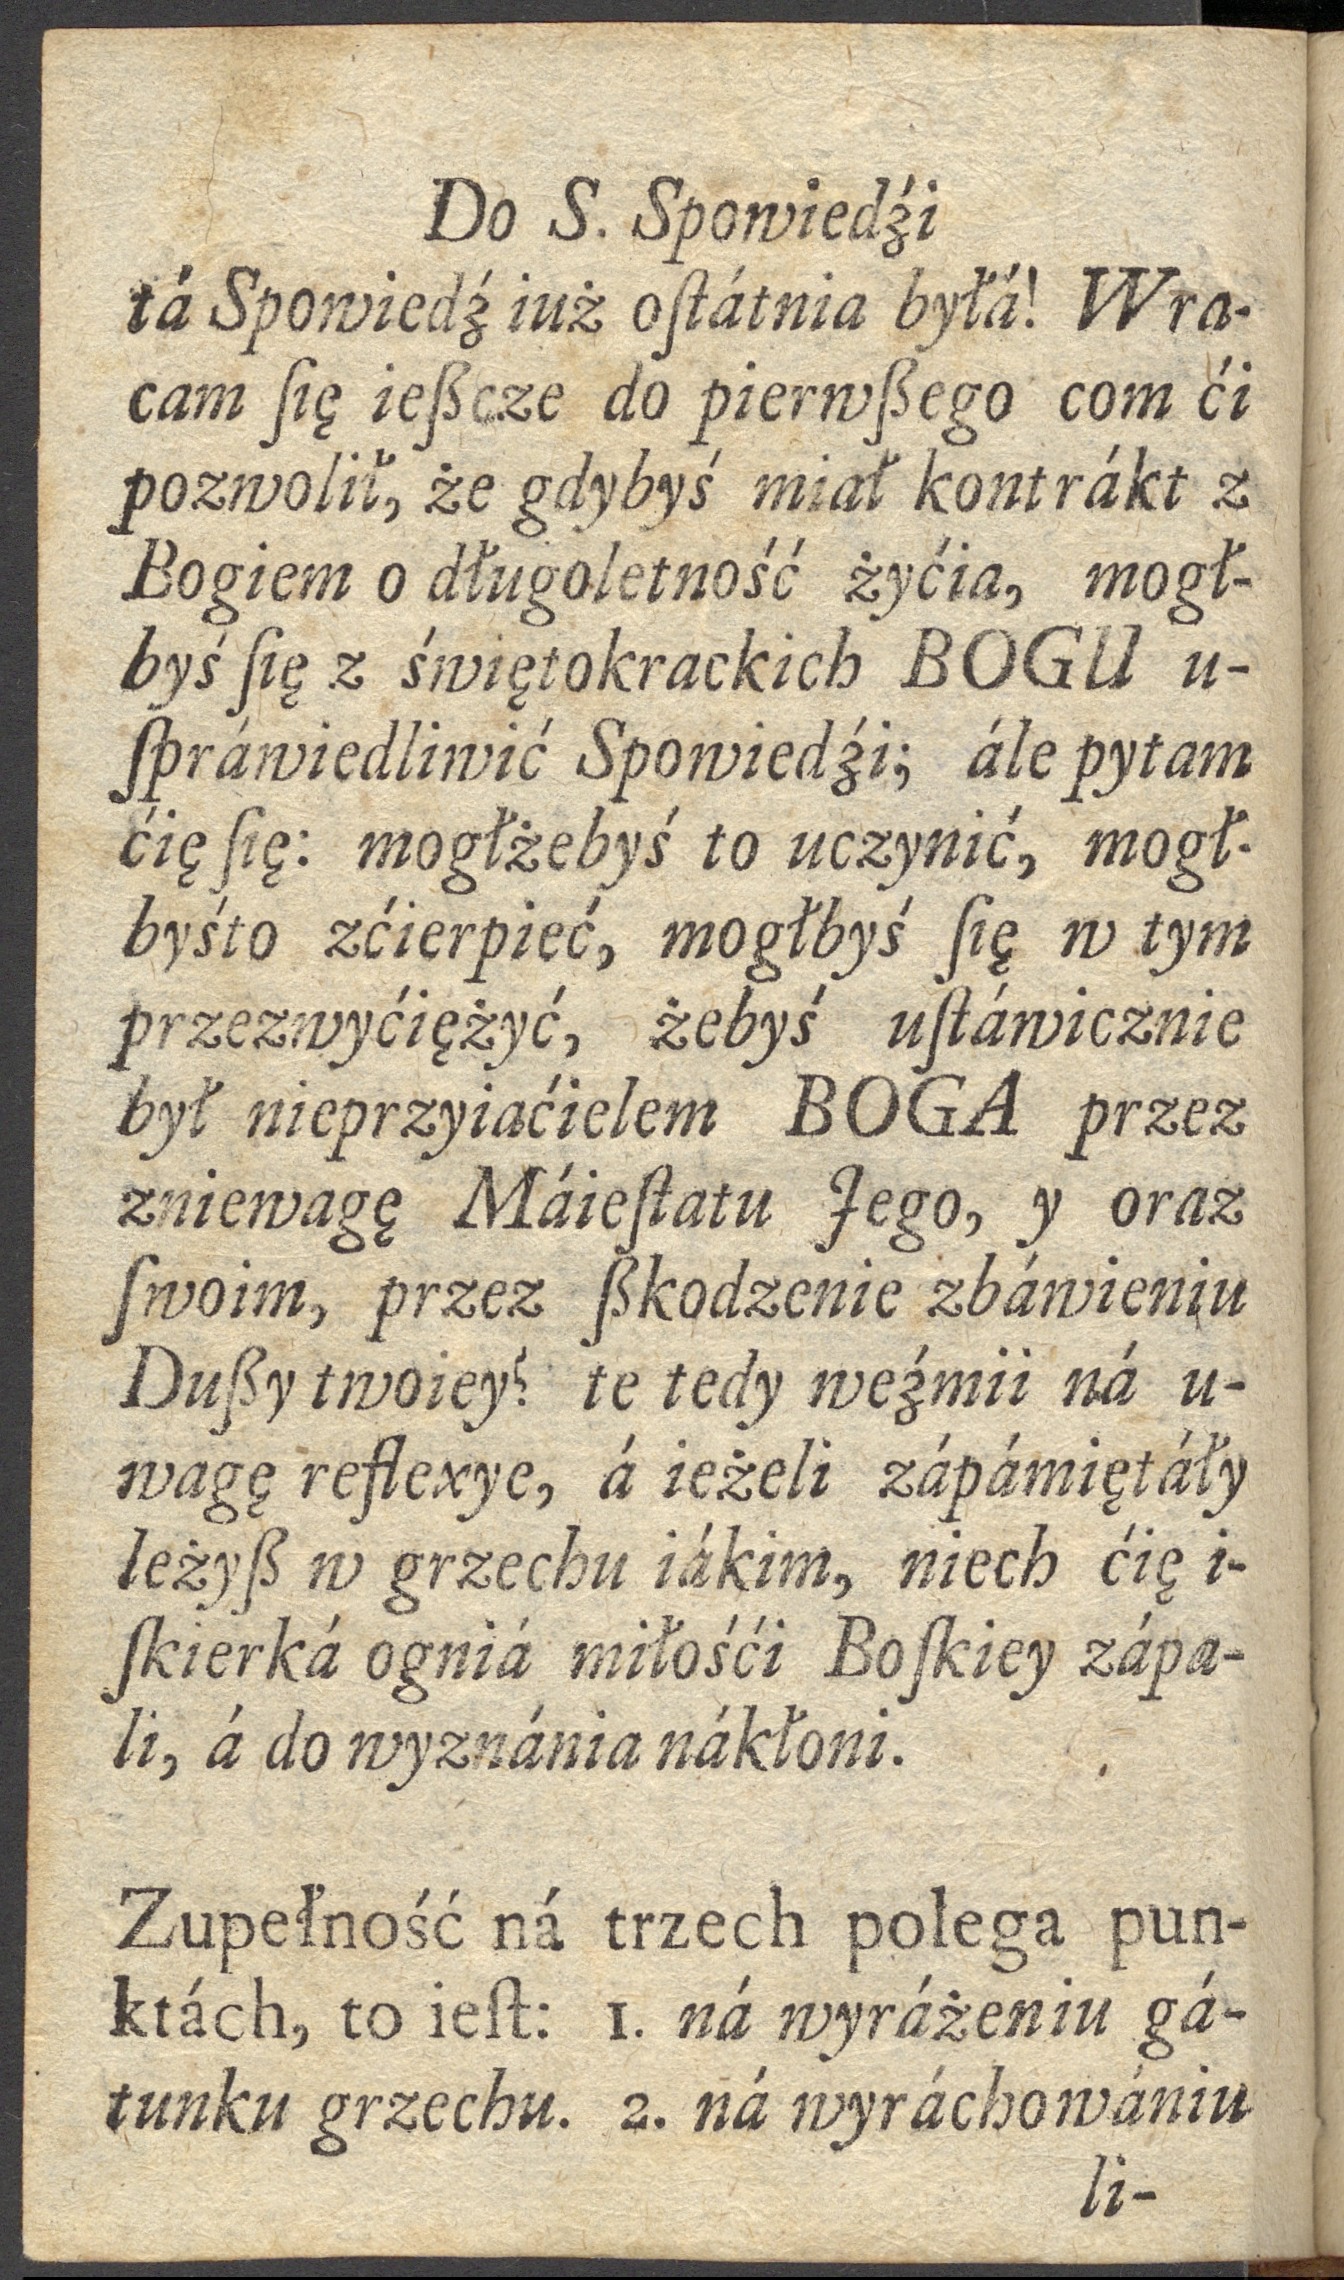 Do S. Spowiedźi
tá Spowiedź iuż oſtátnia byłá! Wra-
cam ſię ießcze do pierwßego com ći
pozwolił, że gdybyś miał kontrákt z
Bogiem o długoletność żyćia, mogł-
byś ſię z świętokrackich BOGU u-
ſpráwiedliwić Spowiedźi; ále pytam
ćię ſię: mogłżebyś to uczynić, mogł-
byśto zćierpieć, mogłbyś ſię w tym
przezwyćiężyć, żebyś uſtáwicznie
był nieprzyiaćielem BOGA przez
zniewagę Máieſtatu Jego, y oraz
ſwoim, przez ßkodzenie zbáwieniu
Dußy twoiey? te tedy weźmii ná u-
wagę reflexye, á ieżeli zápámiętáły
leżyß w grzechu iákim, niech ćię i-
ſkierká ogniá miłośći Boſkiey zápa-
li, á do wyznánia nákłoni.
Zupełność ná trzech polega pun-
ktách, to ieſt: 1. ná wyráżeniu gá-
tunku grzechu. 2. ná wyráchowániu
li-